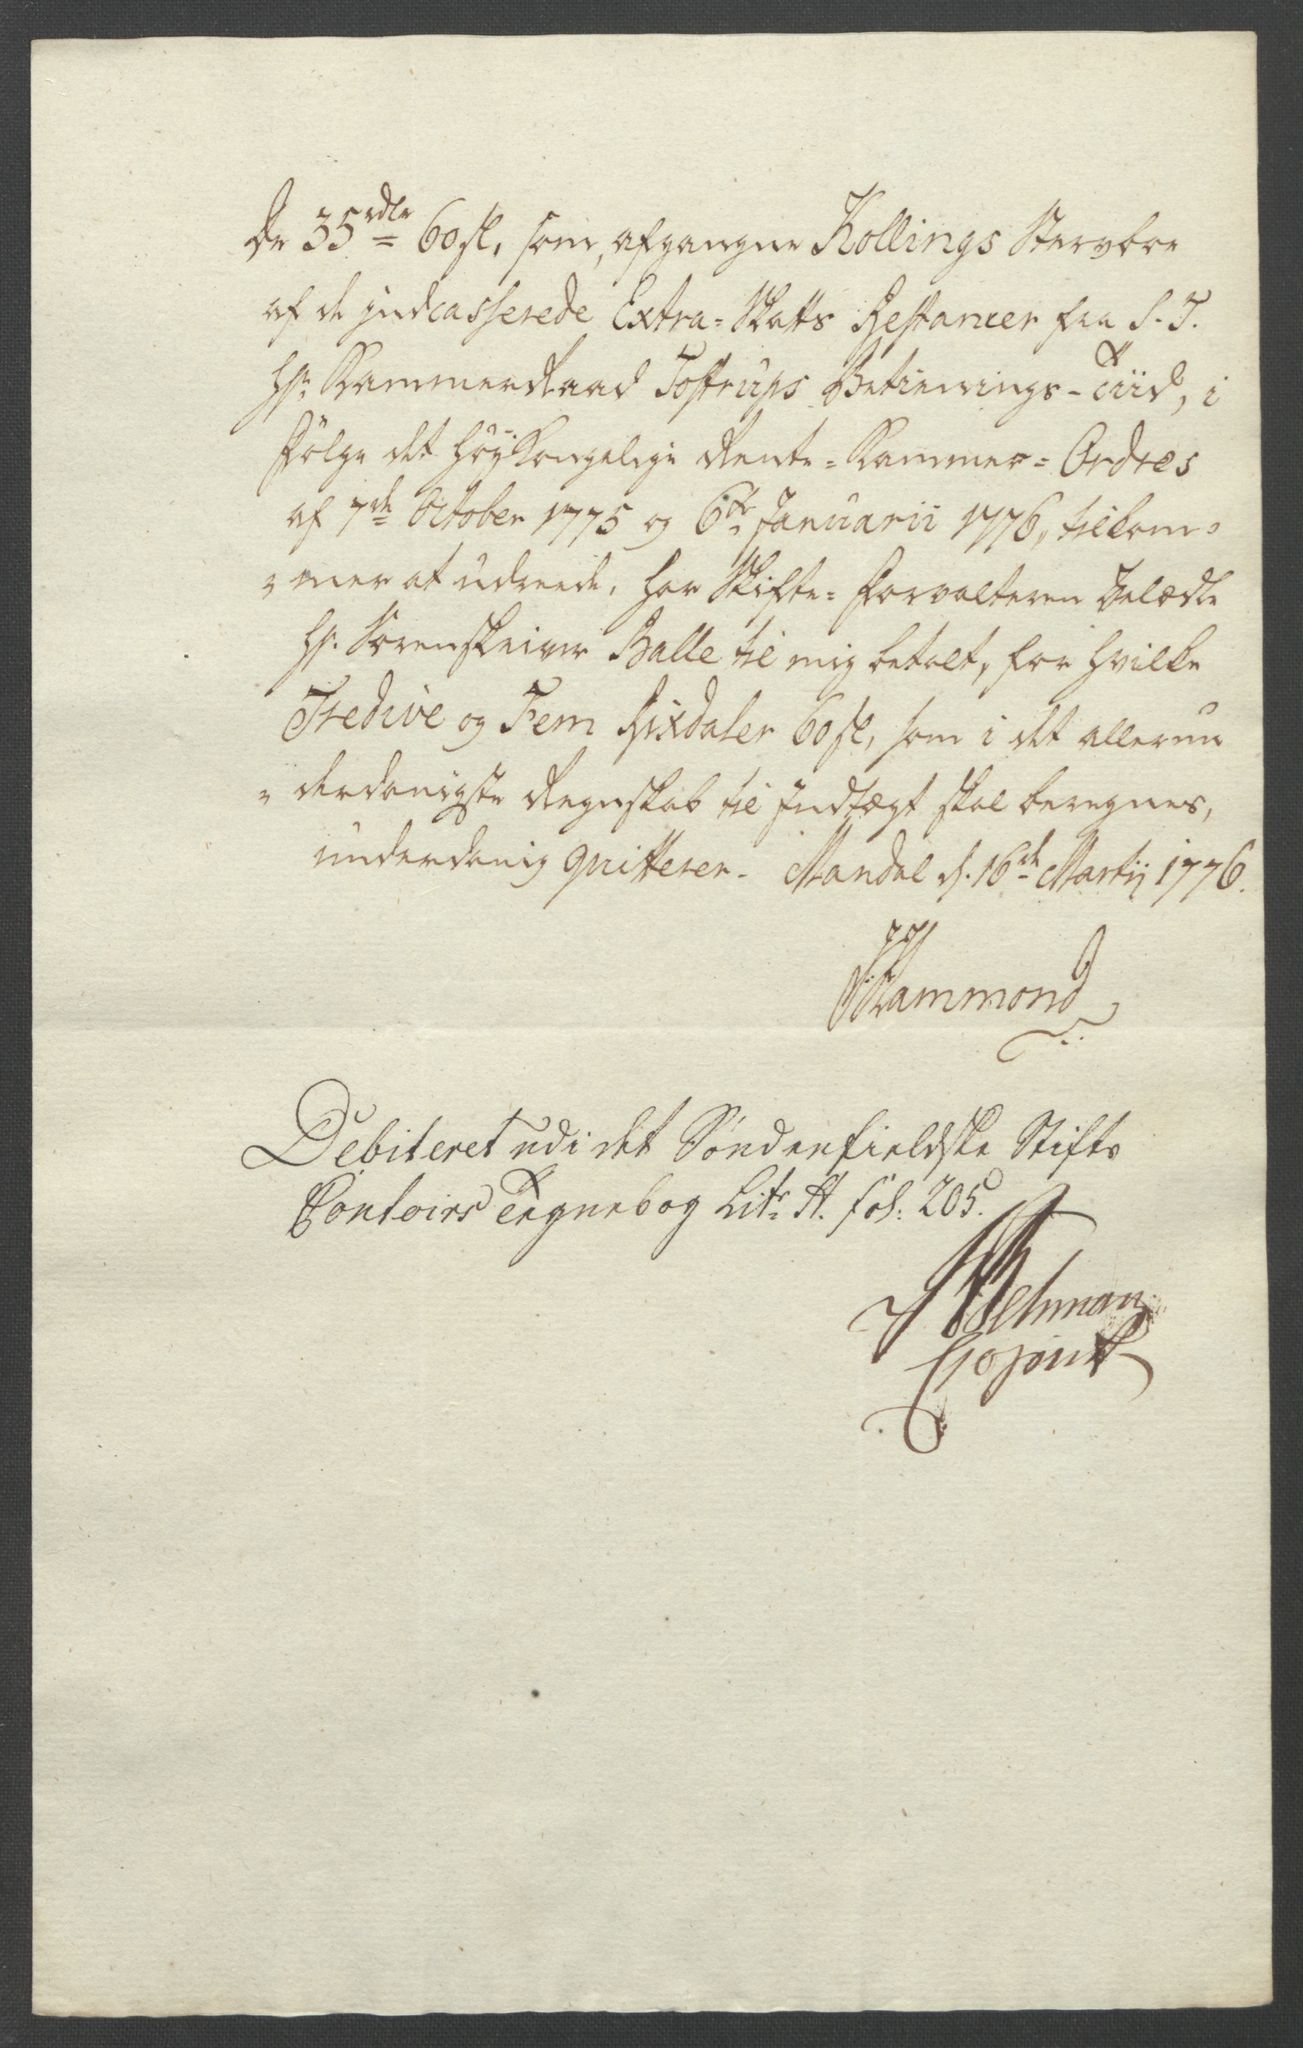 De 35 rdlr 60 sl, som, afgangne Kollings Stervboe
af de jndcasserede Extra-Skatts Restancer fra S. T.
Hr. Kammerraad Tostrups Betienings-Tiid, i
Følge det høykongelige Rente-Kammer-Ordres
af 7de October 1775 og 6te Januarii 1776, tilkom-
-mer at udreede, har Skifte-Forvalteren Velædle
Hr. Sorenskriver Balle til mig betalt, for hvilke
Tredive og Fem Rixdaler 60 sl, som i det allerun
-derdanigste Regnskab til Indtægt skal beregnes,
underdanig qvitterer. Mandal d. 16de Martij 1776.
Hammond
Debiteret udi det Søndenfieldske Stifts
Contoirs Tegnebog Litr A. fol: 205.